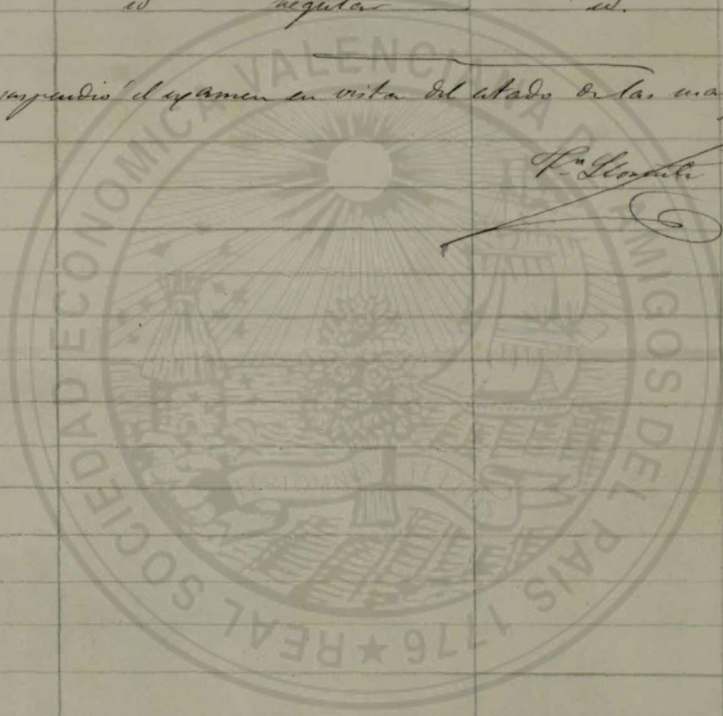 id regular id.
suspendió el examen en vista del estado de las
REAL SOCIEDAD ECONOMICA VALENCIANA DE AMIGOS DEL PAIS 1776 ★